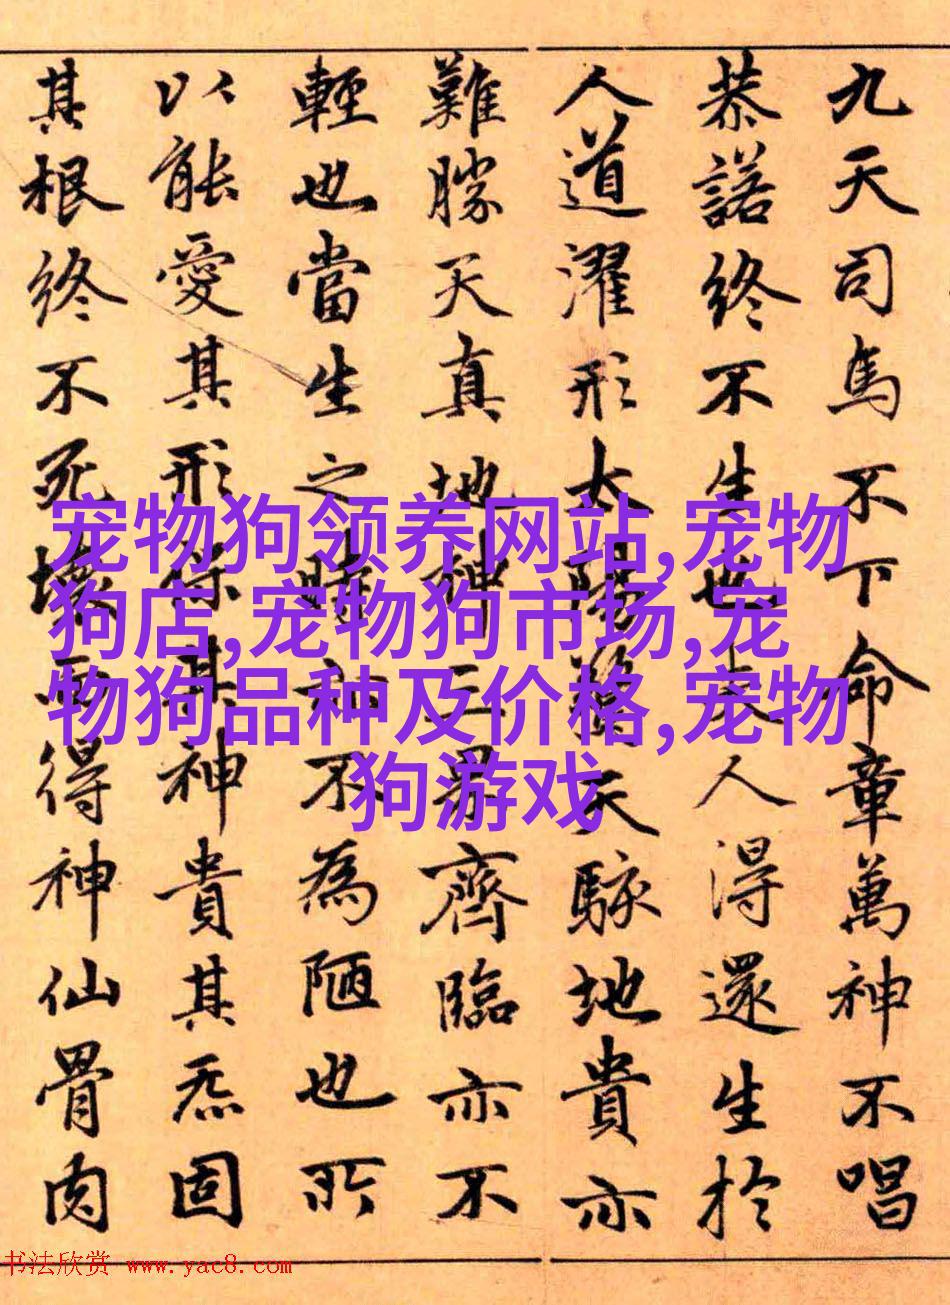 九天司馬不下命章萬神不唱
恭諾終不生也夫人得還生於
人道濯形太陽驚天駭地貴亦
難勝天真地神三界齊臨亦不
輕也當生之時亦不為陋也所
以能愛其形保其神貴其炁固
其根終不死壞而得神仙骨肉
宠物狗领养网站,宠物
狗店,宠物狗市场,宠
物狗品种及价格,宠物
狗游戏
书法欣赏 www.yac8.com